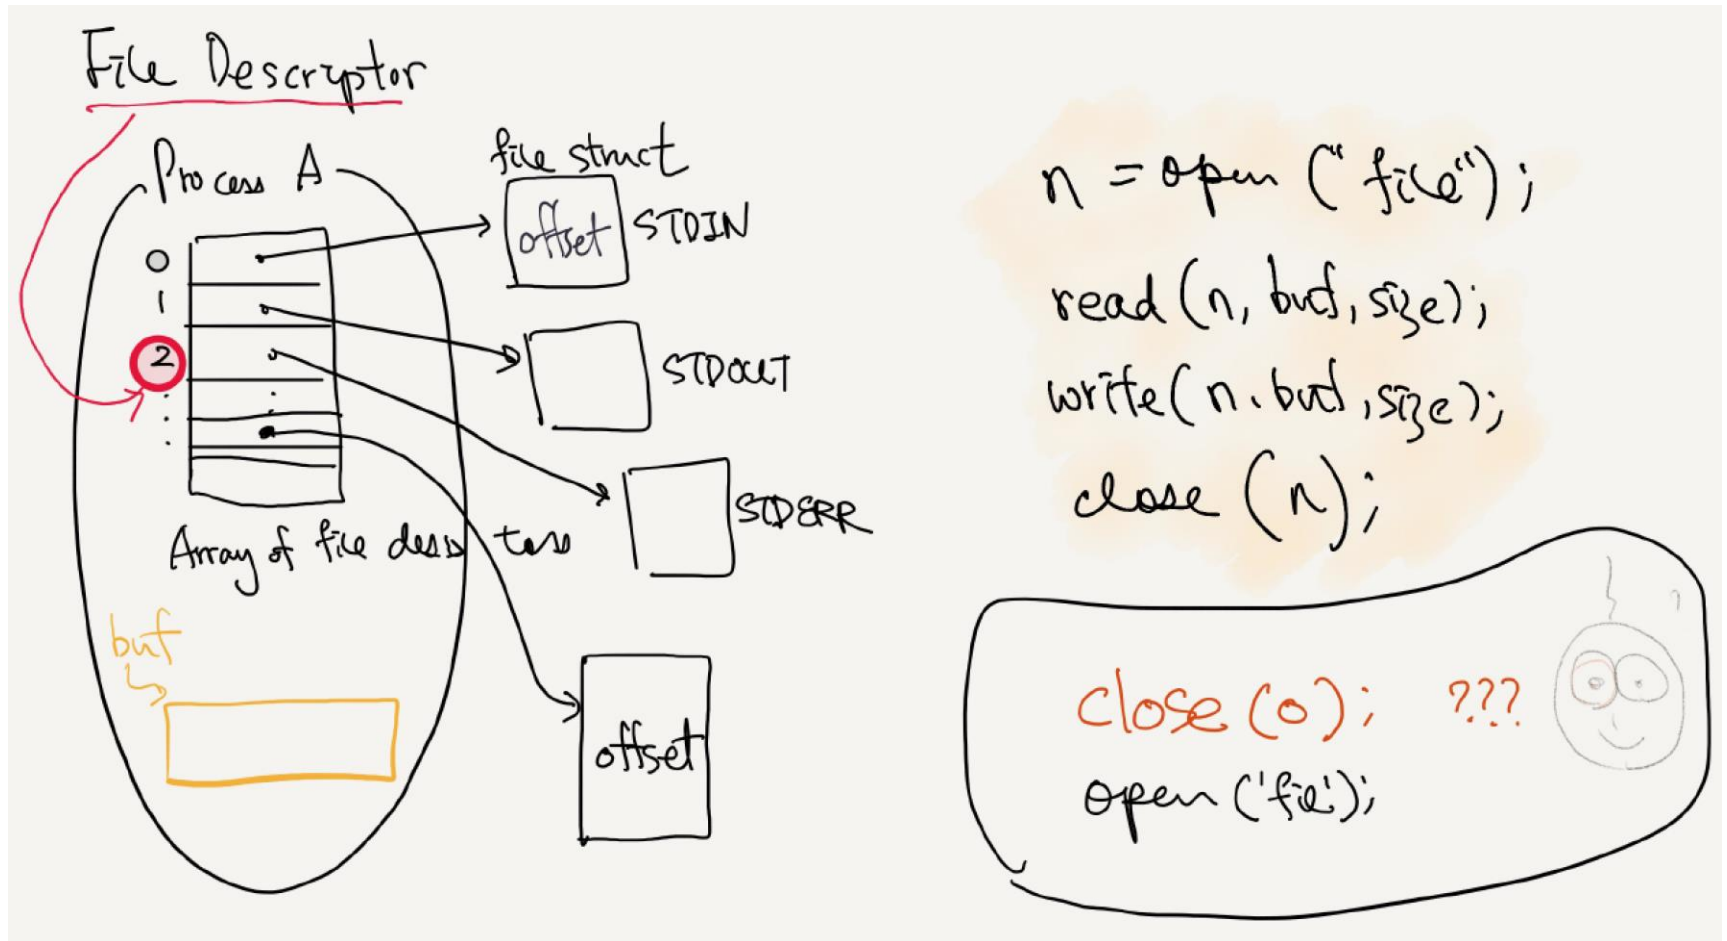 File Descriptor
Process A
file struct
offset STDIN
0
1
2
STDOUT
STDERR
Array of file
buf
offset
n = open ("file");
read (n, buf, size);
write (n, buf, size);
close (n);
close (0); ???
open ('file');